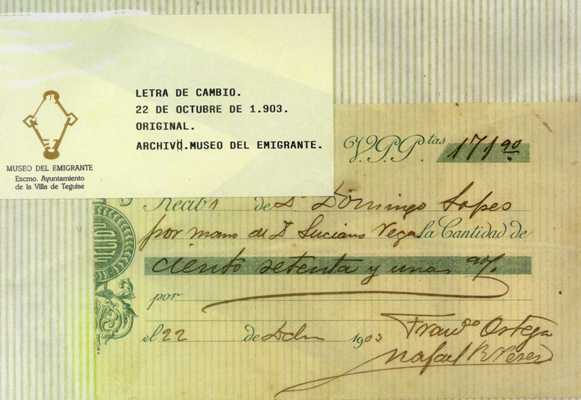 LETRA DE CAMBIO.
22 DE OCTUBRE DE 1.903.
ORIGINAL.
ARCHIVO.MUSEO DEL EMIGRANTE.
MUSEO DEL EMIGRANTE
Excmo. Ayuntamiento
de la Villa de Teguise
V.P.P. tas 171'90
Recibí de Dn Domingo Lopes
por mano de D Luciano Vega la Cantidad de
ciento setenta y una 90/.
por
el 22 de 1903
Ortega
Rafael